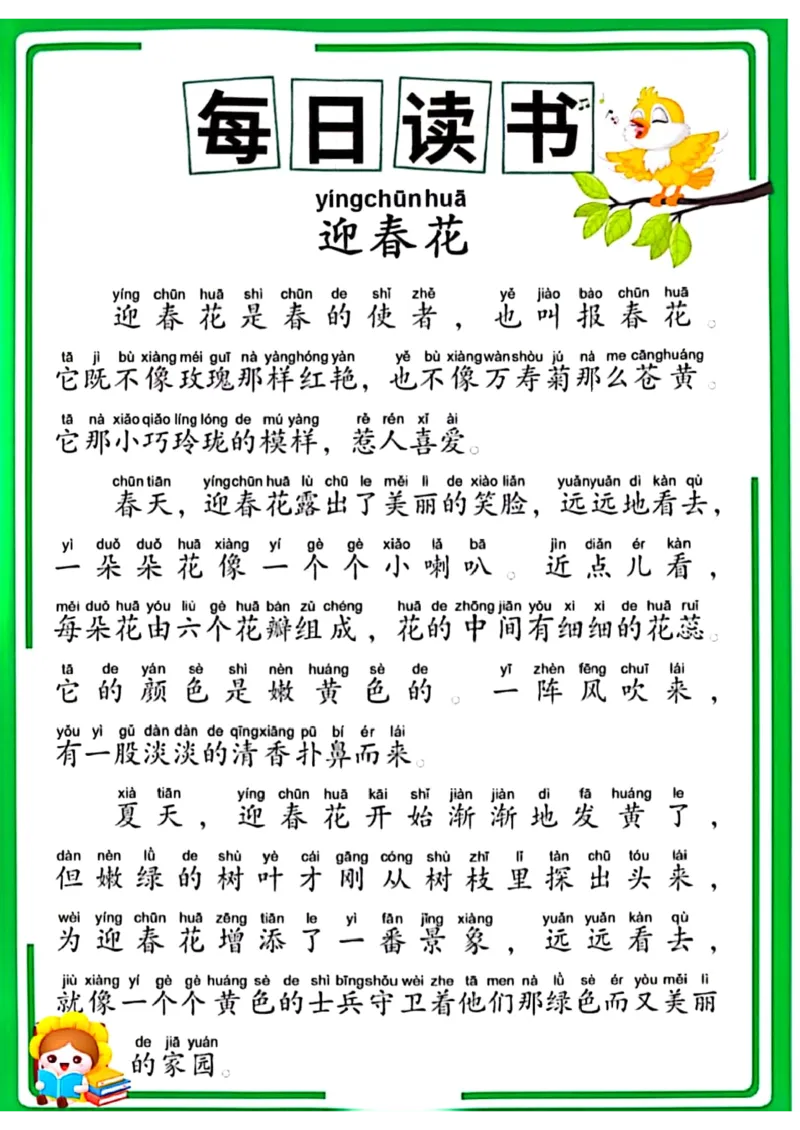 每日读书
yíngchūnhuā
迎春花
yíng chūn huā shì chūn de shǐ zhě yě jiào bào chūn huā
迎春花是春的使者，也叫报春花。
tā jì bù xiàng méi guī nà yàng hóng yàn yě bù xiàng wàn shòu jú nà me cāng huáng
它既不像玫瑰那样红艳，也不像万寿菊那么苍黄。
tā nà xiǎo qiǎo líng lóng de mú yàng rě rén xǐ ài
它那小巧玲珑的模样，惹人喜爱。
chūn tiān yíng chūn huā lù chū le měi lì de xiào liǎn yuǎn yuǎn dì kàn qù
春天，迎春花露出了美丽的笑脸，远远地看去，
yì duǒ duǒ huā xiàng yí gè gè xiǎo lǎ bā jìn diǎn ér kàn
一朵朵花像一个个小喇叭。近点儿看，
měi duǒ huā yóu liù gè huā bàn zǔ chéng huā de zhōng jiān yǒu xì xì de huā ruǐ
每朵花由六个花瓣组成，花的中间有细细的花蕊。
tā de yán sè shì nèn huáng sè de yī zhèn fēng chuī lái
它的颜色是嫩黄色的。一阵风吹来，
yǒu yì gǔ dàn dàn de qīng xiāng pū bí ér lái
有一股淡淡的清香扑鼻而来。
xià tiān yíng chūn huā kāi shǐ jiàn jiàn dì fā huáng le
夏天，迎春花开始渐渐地发黄了，
dàn nèn lǜ de shù yè cái gāng cóng shù zhī lǐ tàn chū tóu lái
但嫩绿的树叶才刚从树枝里探出头来，
wèi yíng chūn huā zēng tiān le yì fān jǐng xiàng yuǎn yuǎn kàn qù
为迎春花增添了一番景象，远远看去，
jiù xiàng yí gè gè huáng sè de shì bīng shǒu wèi zhe tā men nà lǜ sè ér yòu měi lì
就像一个个黄色的士兵守卫着他们那绿色而又美丽
de jiā yuán
的家园。